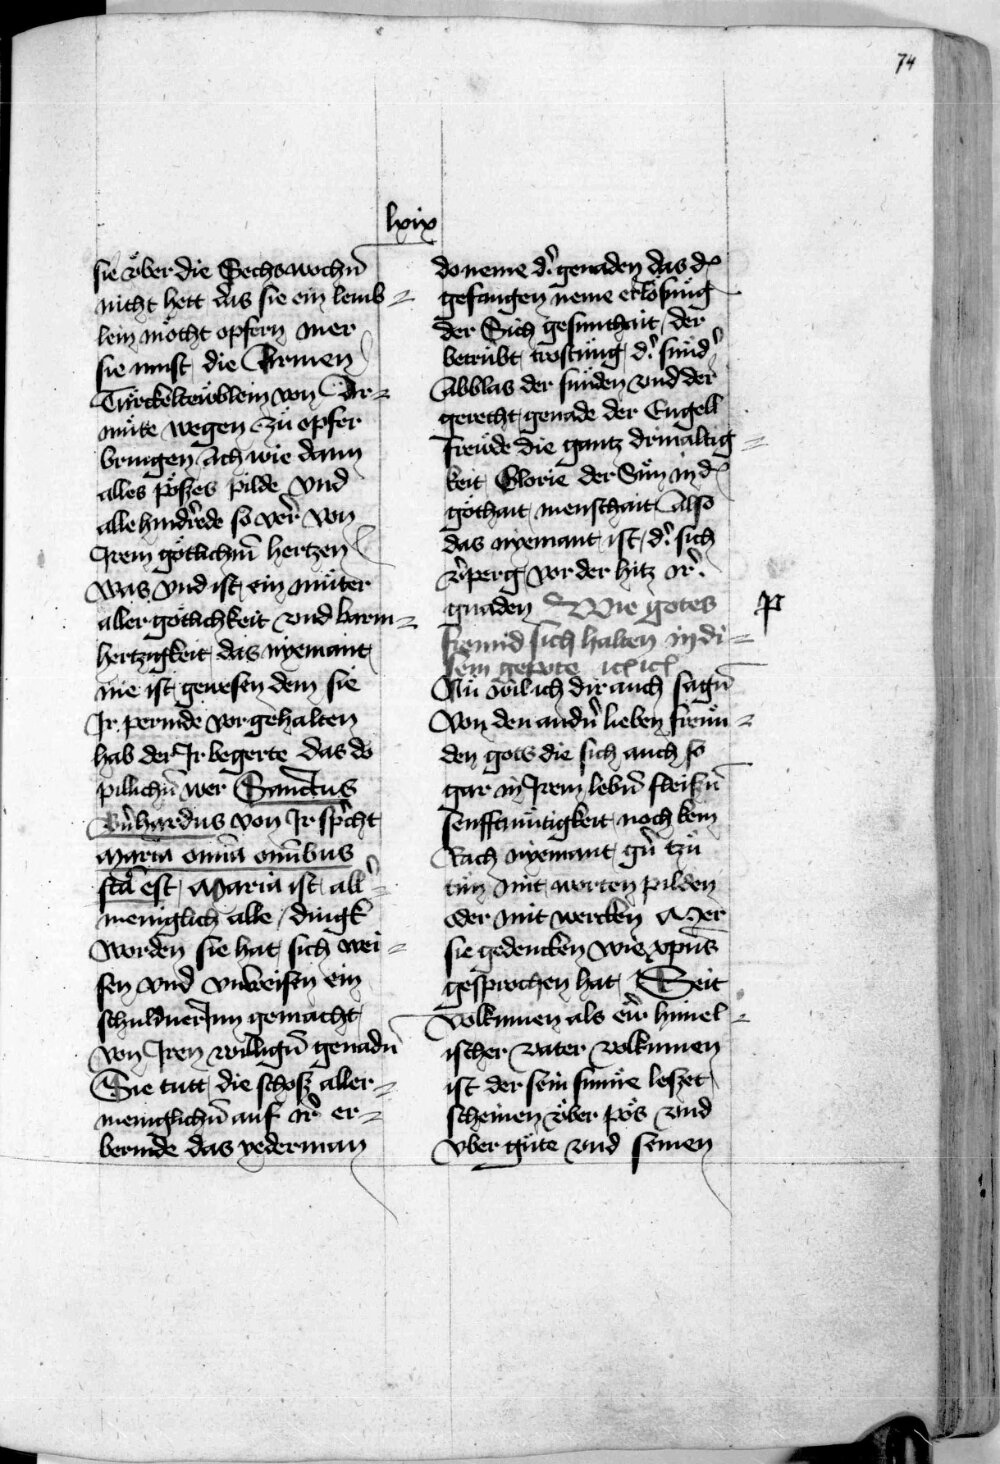 74
lxix
sie vͤber die Sechswochn̄
nicht hett das sie ein lemb=
lein moͤcht opfern mer
sie must die Armen
Tuͤrckelteuͤblein von Ar=
muͤte wegen zuͤ opfer
bringen Ach wie dann
alles poͤszes pilde vnd
alle hindrede so verr von
Irem goͤtlichm̄ hertzen
was vnd ist ein muͤter
aller goͤtlichkeit vnd barm=
hertzigkeit das nyemant
nie ist gewesen dem sie
Ir permde vorgehalten
hab der Ir begerte das do
pillichn̄ wer Sanctus
Bern̄hardus von Ir spricht
Maria om̄ia om̄ibus
fc̄ā est Maria ist all=
meniglich alle dingk
worden sie hat sich wei=
sen vnd vnweisen ein
schuldnerInn gemacht
von Iren willign̄ genadn̄
Sie tutt die schosz aller=
meniglichn̄ auf ir er=
bermde das yederman
do neme d' genaden das d'
gefangen neme erloͤsung
der Sich gesunthait der
betruͤbt trostuͤng d' suͤnd'
Abblas der suͤnden vnd der
gerecht genade der Engell
freuͤde die gantz drinaltig=
keit Glorie der Suͤn in d'
gothait menschait Also
das nyemant ist d' sich
v'perg vor der hitz Ir'
gnaden Wie gotes
freund sich halten in di=
sem gepote
P
Nuͤ wil ich dir auch sagn̄
von den andn̄ lieben freuͤn=
den gots die sich auch so
gar in Irem lebn̄ fleiszn̄
senfftmuͤtigkeit noch kein
Rach nyemant gn̄ tzuͤ
tuͤn mit worten pilden
oder mit wercken Mer
sie gedencken wie xp̄us
gesprochen hat Seit
volkumen als ewr himel=
ischer vater volkumen
ist der sein sunne leszet
scheinen vͤber poͤs vnd
vber guͤte vnd seinen